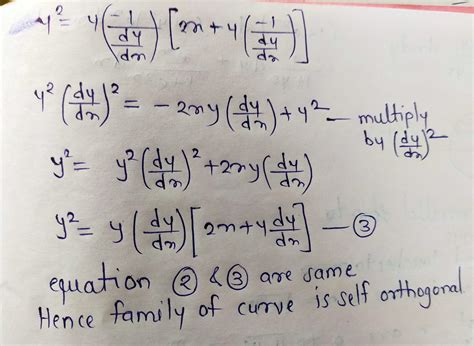 y² = y(-1/(dy/dx)) [2x + y(-1/(dy/dx))]
y²(dy/dx)² = - 2xy(dy/dx) + y² — multiply by (dy/dx)²
y² = y²(dy/dx)² + 2xy(dy/dx)
y² = y(dy/dx)[2x + y dy/dx] — ③
equation ② & ③ are same
Hence family of curve is self orthogonal